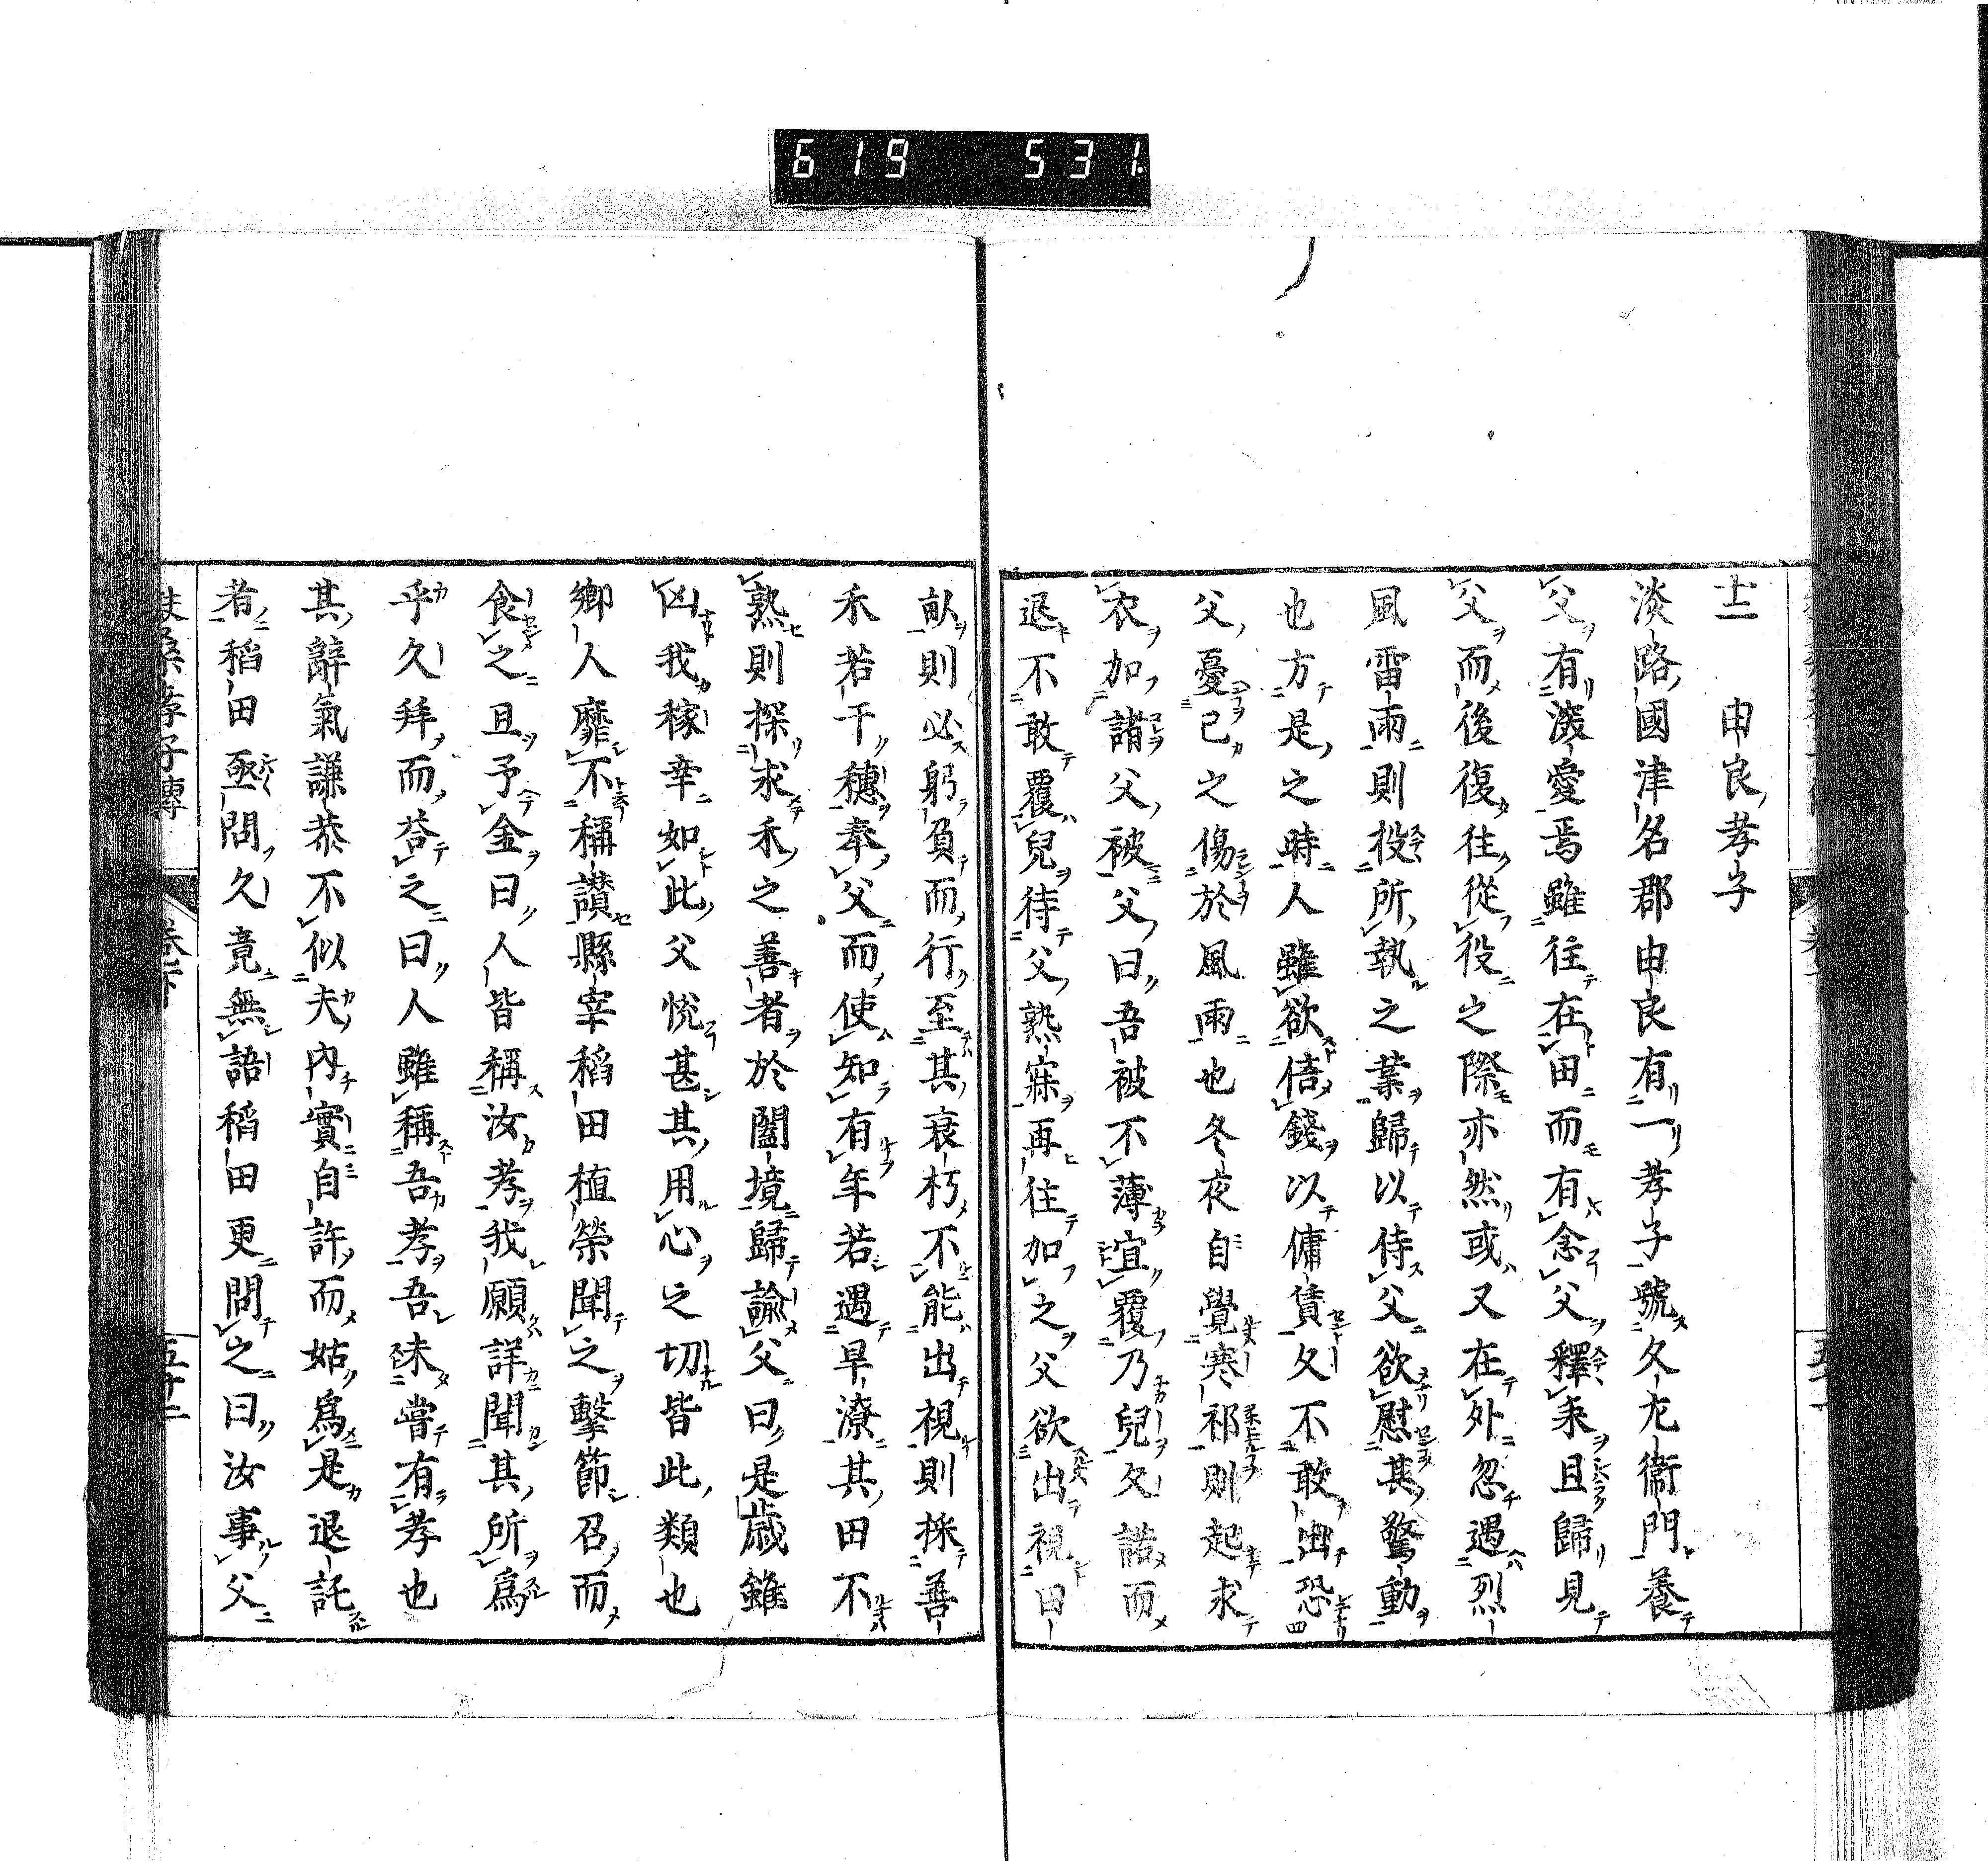 619 531
十二 由良孝子
淡路國津名郡由良有一孝子號久左衞門養
父有深愛焉雖往在田而有念父釋耒且歸見
父而後復往從役之際亦然或又在外忽遇烈
風雷雨則投所執之業歸以侍父欲慰其驚動
也方是之時人雖欲倍錢以傭賃久不敢出恐
父憂已之傷於風雨也冬夜自覺寒祁則起求
衣加諸父被父曰吾被不薄宜覆乃兒久諾而
退不敢覆兒待父熟寐再往加之父欲出視田
畝則必躬負而行至其衰朽不能出視則採善
禾若干穗奉父而使知有年若遇旱潦其田不
熟則探求禾之善者於闔境歸諭父曰是歲雖
凶我稼幸如此父悅甚其用心之切皆此類也
鄉人靡不稱讃縣宰稻田植榮聞之擊節召而
食之且予金曰人皆稱汝孝我願詳聞其所爲
乎久拜而荅之曰人雖稱吾孝吾未嘗有孝也
其辭氣謙恭不似夫內實自許而姑爲是退託
者稻田亟問久竟無語稻田更問之曰汝事父
孝子傳 卷下 五十二